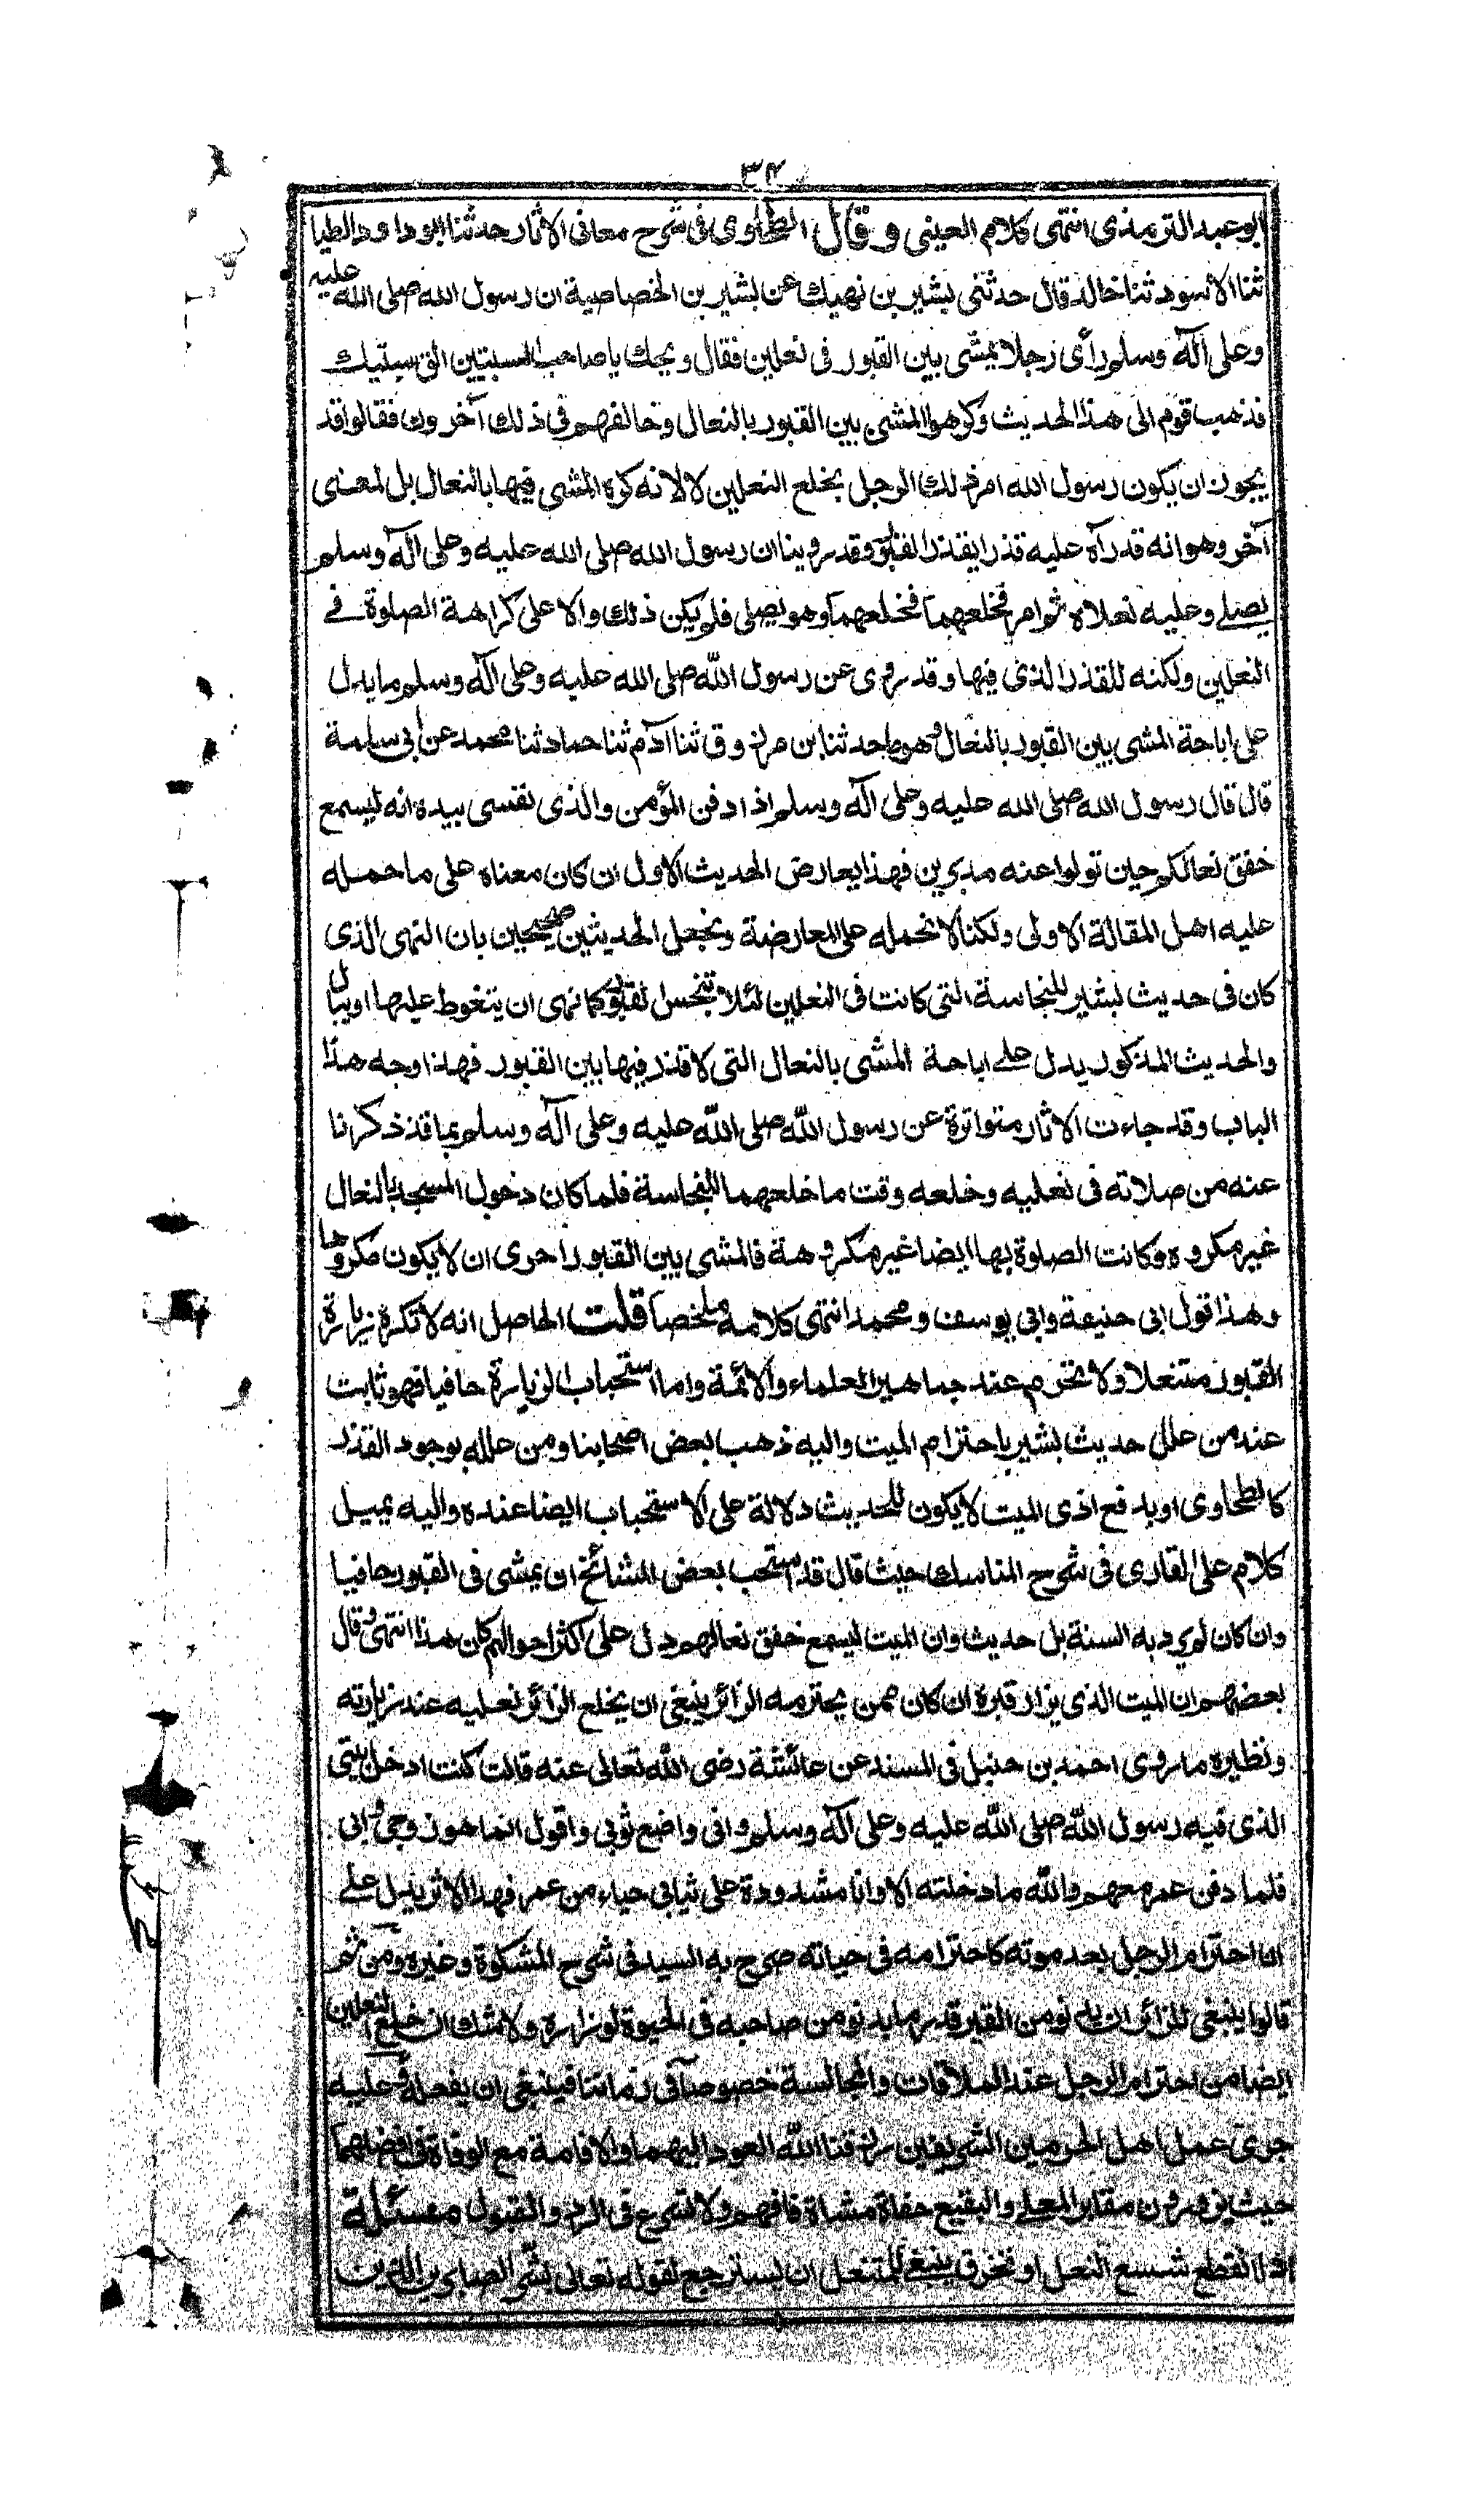 ٣٤
ابو عبد الترمذى انتهى كلام العينى وقال الطحاوى فى شرح معانى الاثار حدثنا ابو داود الطيا
ثنا الاسود ثنا خالد قال حدثنى بشير بن نهيك عن بشير بن الخصاصية ان رسول الله صلى الله عليه
وعلى آله وسلم رأى رجلا يمشى بين القبور فى نعلين فقال ويحك يا صاحب السبتيين الق سبتيك
فذهب قوم الى هذا الحديث وكرهوا المشى بين القبور بالنعال وخالفهم فى ذلك آخرون فقالوا قد
يجوز ان يكون رسول الله امر ذلك الرجل بخلع النعلين لا لانه كره المشى فيها بالنعال بل لمعنى
آخر وهو انه قد رآه عليه قذرا يقذر القبور وقد روينا ان رسول الله صلى الله عليه وعلى آله وسلم
يصلى وعليه نعلاه ثم امر فخلعهما فخلعهما وهو يصلى فلم يكن ذلك والا على كراهة الصلوة فے
النعلين ولكنه للقذر الذى فيها وقد روى عن رسول الله صلى الله عليه وعلى آله وسلم ما يدل
على اباحة المشى بين القبور بالنعال وهو ما حدثنا بن مرزوق ثنا آدم ثنا حماد ثنا محمد عن ابى سلمة
قال قال رسول الله صلى الله عليه وعلى آله وسلم اذا دفن المؤمن والذى نفسى بيده انه ليسمع
خفق نعالكم حين تولوا عنه مدبرين فهذا يعارض الحديث الاول ان كان معناه على ما حمله
عليه اهل المقالة الاولى ولكنا لا نحمله على المعارضة ونجعل الحديثين صحيحين بان النهى الذى
كان فى حديث بشير للنجاسة التى كانت فى النعلين لئلا تنجس القبور كما نهى ان يتغوط عليها او يبال
والحديث المذكور يدل على اباحة المشى بالنعال التى لا قذر فيها بين القبور فهذا وجه هذا
الباب وقد جاءت الاثار متواترة عن رسول الله صلى الله عليه وعلى آله وسلم بما قد ذكرنا
عنه من صلاته فى نعليه وخلعه وقت ما خلعهما للنجاسة فلما كان دخول المسجد بالنعال
غير مكروه وكانت الصلوة بها ايضا غير مكروهة فالمشى بين القبور احرى ان لا يكون مكروها
وهذا قول ابى حنيفة وابى يوسف ومحمد انتهى كلامه ملخصا قلت الحاصل انه لا تكره زيارة
القبور متنعلا ولا تحرم عند جماهير العلماء والائمة واما استحباب الزيارة حافيا فهو ثابت
عند من علل حديث بشير باحترام الميت واليه ذهب بعض اصحابنا ومن علله بوجود القذر
كالطحاوى او بدفع اذى الميت لا يكون للحديث دلالة على الاستحباب ايضا عنده واليه يميل
كلام على القارى فى شرح المناسك حيث قال قد استحب بعض المشائخ ان يمشى فى القبور حافيا
وان كان لم يرد به السنة بل حديث وان الميت ليسمع خفق نعالهم دل على اكثر احوالهم كان هذا انتهى وقال
بعضهم ان الميت الذى يزار قبره ان كان ممن يحترمه الزائر ينبغى ان يخلع الزائر نعليه عند زيارته
ونظيره ما روى احمد بن حنبل فى المسند عن عائشة رضى الله تعالى عنه قالت كنت ادخل بيتى
الذى فيه رسول الله صلى الله عليه وعلى آله وسلم وانى واضع ثوبى واقول انما هو زوجى وابى
فلما دفن عمر معهم والله ما دخلته الا وانا مشدودة على ثيابى حياء من عمر فهذا الاثر يدل على
ان احترام الرجل بعد موته كاحترامه فى حياته صرح به السيد فى شرح المشكوة وغيره ومن ثم
قالوا ينبغى للزائر ان يدنو من القبر قدر ما يدنو من صاحبه فى الحيوة لو زاره ولا شك ان خلع النعلين
ايضا من احترام الرجل عند الملاقات والمجالسة خصوصا فى زماننا فينبغى ان يفعله وعليه
جرى عمل اهل الحرمين الشريفين رزقنا الله العود اليهما والاقامة مع الوفاة فى افضلهما
حيث يزورون مقابر المعلى والبقيع حفاة مشاة فافهم ولا تسرع فى الرد والقبول مسئلة
اذا انقطع شسع النعل او تخرق ينبغى للمتنعل ان يسترجع لقوله تعالى بشر الصابرين الذين